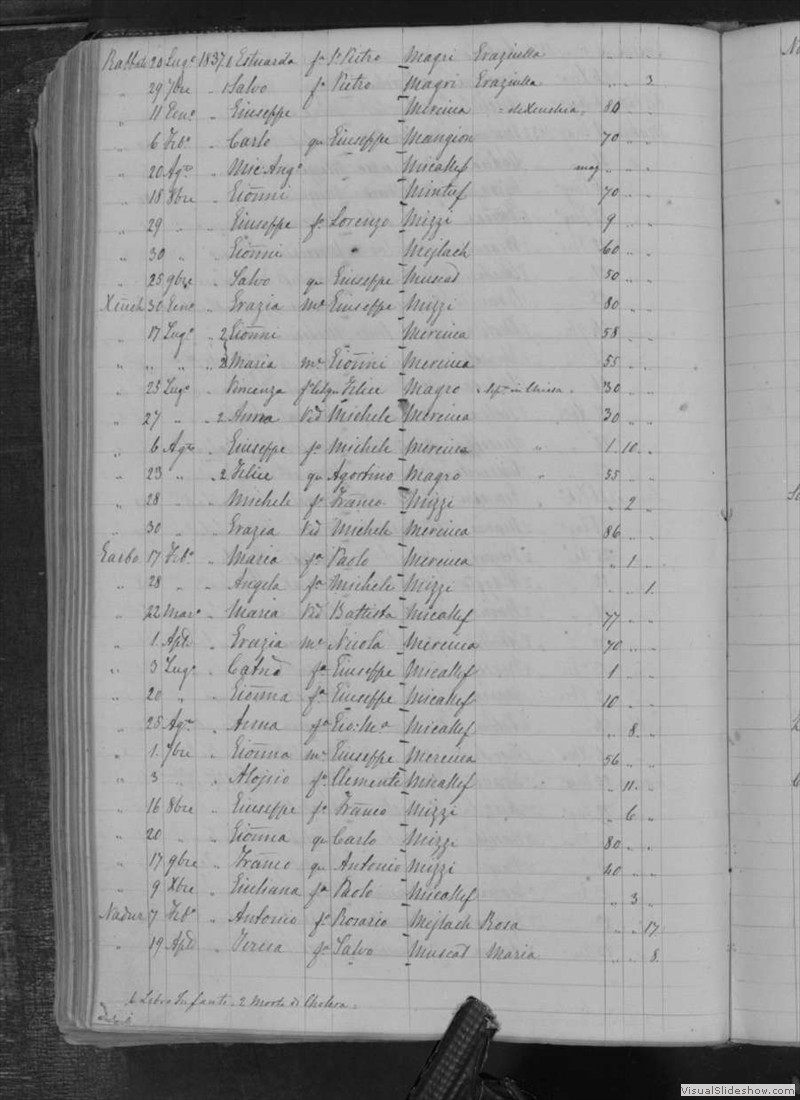 Rabbato 20 Lugo 1837 1 Estuarda fa Po Pietro Magri Graziulla " "
" 29 7bre " 1 Salvo fo Pietro Magri Graziulla " " 3
" 11 Geno " Giuseppe Mercieca = di Xeuchia, 80 " "
" 6 Febo " Carlo qu Giuseppe Mangion 70 " "
" 20 Ago " Mic: Ango Micallef mag " "
" 18 8bre " Gionni Mintuf 70 " "
" 29 " " Giuseppe fo Lorenzo Mizzi 9 " "
" 30 " Gionni Mejlach 60 " "
" 25 9bre " Salvo qu Giuseppe Muscat 50 " "
30 Geno " Grazia me Giuseppe Mizzi 80 " "
" 17 Lugo " 2 Gionni Mercieca 58 " "
" " " " 2 Maria me Gionni Mercieca 55 " "
" 25 Lugo " Vincenza Felice Magro in Chiesa 30 " "
" 27 " 2 Anna Vid Michele Mercieca 30 " "
" 6 Ago " Giuseppe fo Michele Mercieca " 1 10 "
" 23 " " 2 Felice qu Agostino Magro " 55 " "
" 28 " " Michele fo Franco Mizzi " 2 "
" 30 " Grazia Vid Michele Mercieca 86 " "
Garbo 17 Febo " Maria fa Paolo Mercieca " 1 "
" 28 " " Angela fa Michele Mizzi " " 1
" 22 Maro " Maria Vid Battista Micallef 77 " "
" 1 Aple " Grazia me Nicola Mercieca 70 " "
" 3 Lugo " Catna fa Giuseppe Micallef 1 " "
" 20 " " Gionna fa Giuseppe Micallef 10 " "
" 25 Ago " Anna fa Gio: Ma Micallef " 8 "
" 1 7bre " Gionna me Giuseppe Mercieca 56 " "
" 3 " " Alojsio fo Clemente Micallef " 11 "
" 16 8bre " Giuseppe fo Franco Mizzi " 6 "
" 20 " Gionna qu Carlo Mizzi 80 " "
" 17 9bre " Franco qu Antonio Mizzi 40 " "
" 9 Xbre " Giuliana fa Paolo Micallef " 3 "
Nadur 7 Febo " Antonio fo Rosario Mejlach Rosa " " 17
" 19 Aple " Teresa fa Salvo Muscat Maria " " 8
1 Libro Infanti - 2 Morto di Cholera.
VisualSlideshow.com